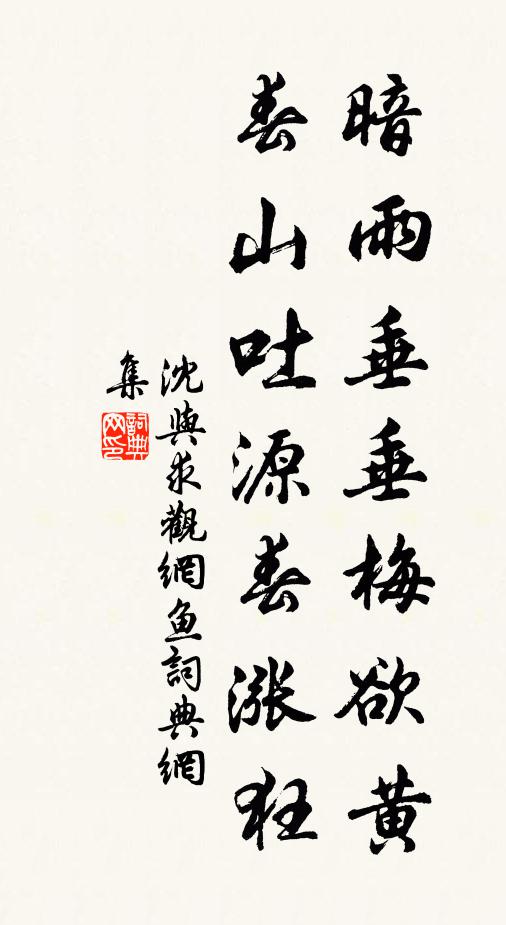 暗雨垂垂梅欲黃
春山吐源春漲狂
沈與求觀網魚詞典網
集
詞典網印